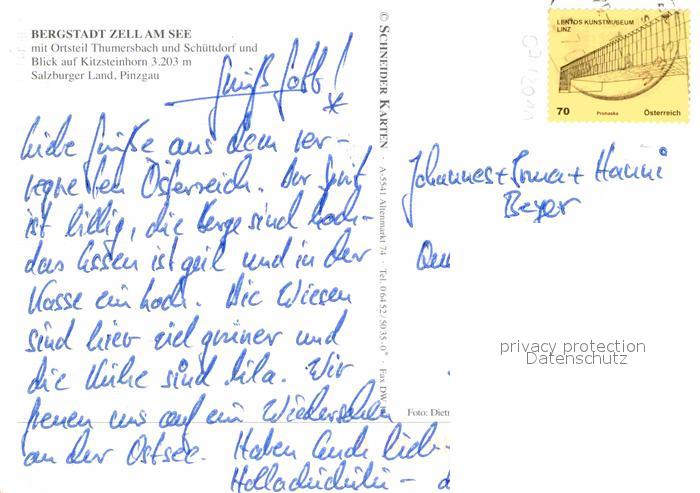 BERGSTADT ZELL AM SEE
mit Ortsteil Thumersbach und Schüttdorf und
Blick auf Kitzsteinhorn 3.203 m
Salzburger Land, Pinzgau
Grüß Gott!
*
Liebe Grüße aus dem ver-
regneten Österreich. Der Sprit
ist billig, die Berge sind hoch-
das Essen ist geil und in der
Kasse ein Loch. Die Wiesen
sind hier viel grüner und
die Kühe sind lila. Wir
freuen uns auf ein Wiedersehen
an der Ostsee. Haben Euch lieb.
Holladiridiri -
© SCHNEIDER KARTEN · A-5541 Altenmarkt 74 · Tel. 0 64 52 / 50 35-0* · Fax DW
Foto: Dietr
LENTOS KUNSTMUSEUM
LINZ
70
Österreich
07/2011
Johannes + Irma + Hanni
Beyer
privacy protection
Datenschutz